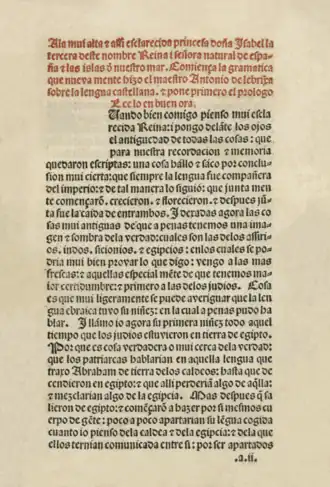 A la mui alta ⁊ assi esclarecida princesa doña Isabel la
tercera deste nombre Reina i señora natural de espa-
ña ⁊ las islas de nuestro mar. Comiença la gramatica
que nueva mente hizo el maestro Antonio de lebrixa
sobre la lengua castellana. ⁊ pone primero el prologo
Lee lo en buen ora.
Uando bien comigo pienso mui escla
recida Reina: i pongo delāte los ojos
el antiguedad de todas las cosas: que
para nuestra recordacion ⁊ memoria
quedaron escriptas: una cosa hállo ⁊ sáco por conclu
sion mui cierta: que siempre la lengua fue compañera
del imperio: ⁊ de tal manera lo siguió: que junta men
te començarō. crecieron. ⁊ florecieron. ⁊ despues jū
ta fue la caida de entrambos. I dexadas agora las co
sas mui antiguas de que a penas tenemos una ima
gen ⁊ sombra de la verdad: cuales son las delos assiri
os. indos. sicionios. ⁊ egipcios: enlos cuales se po
dria mui bien provar lo que digo: vengo a las mas
frescas: ⁊ aquellas especial mēte de que tenemos ma
ior certidumbre: ⁊ primero a las delos judios. Cosa
es que mui ligera mente se puede averiguar que la len
gua ebraica tuvo su niñez: en la cual a penas pudo ha
blar. I llámo io agora su primera niñez todo aquel
tiempo que los judios estuvieron en tierra de egipto.
Por que es cosa verdadera o mui cerca dela verdad:
que los patriarcas hablarian en aquella lengua que
traxo Abraham de tierra delos caldeos: hasta que de
cendieron en egipto: ⁊ que alli perderiā algo de aq̄lla:
⁊ mezclarian algo de la egipcia. Mas despues q̄ sa
lieron de egipto: ⁊ comēçarō a hazer por si mesmos cu
erpo de gēte: poco a poco apartarian su lēgua cogida
cuanto io pienso dela caldea ⁊ dela egipcia: ⁊ dela que
ellos ternian comunicada entre si: por ser apartados
.a.ii.